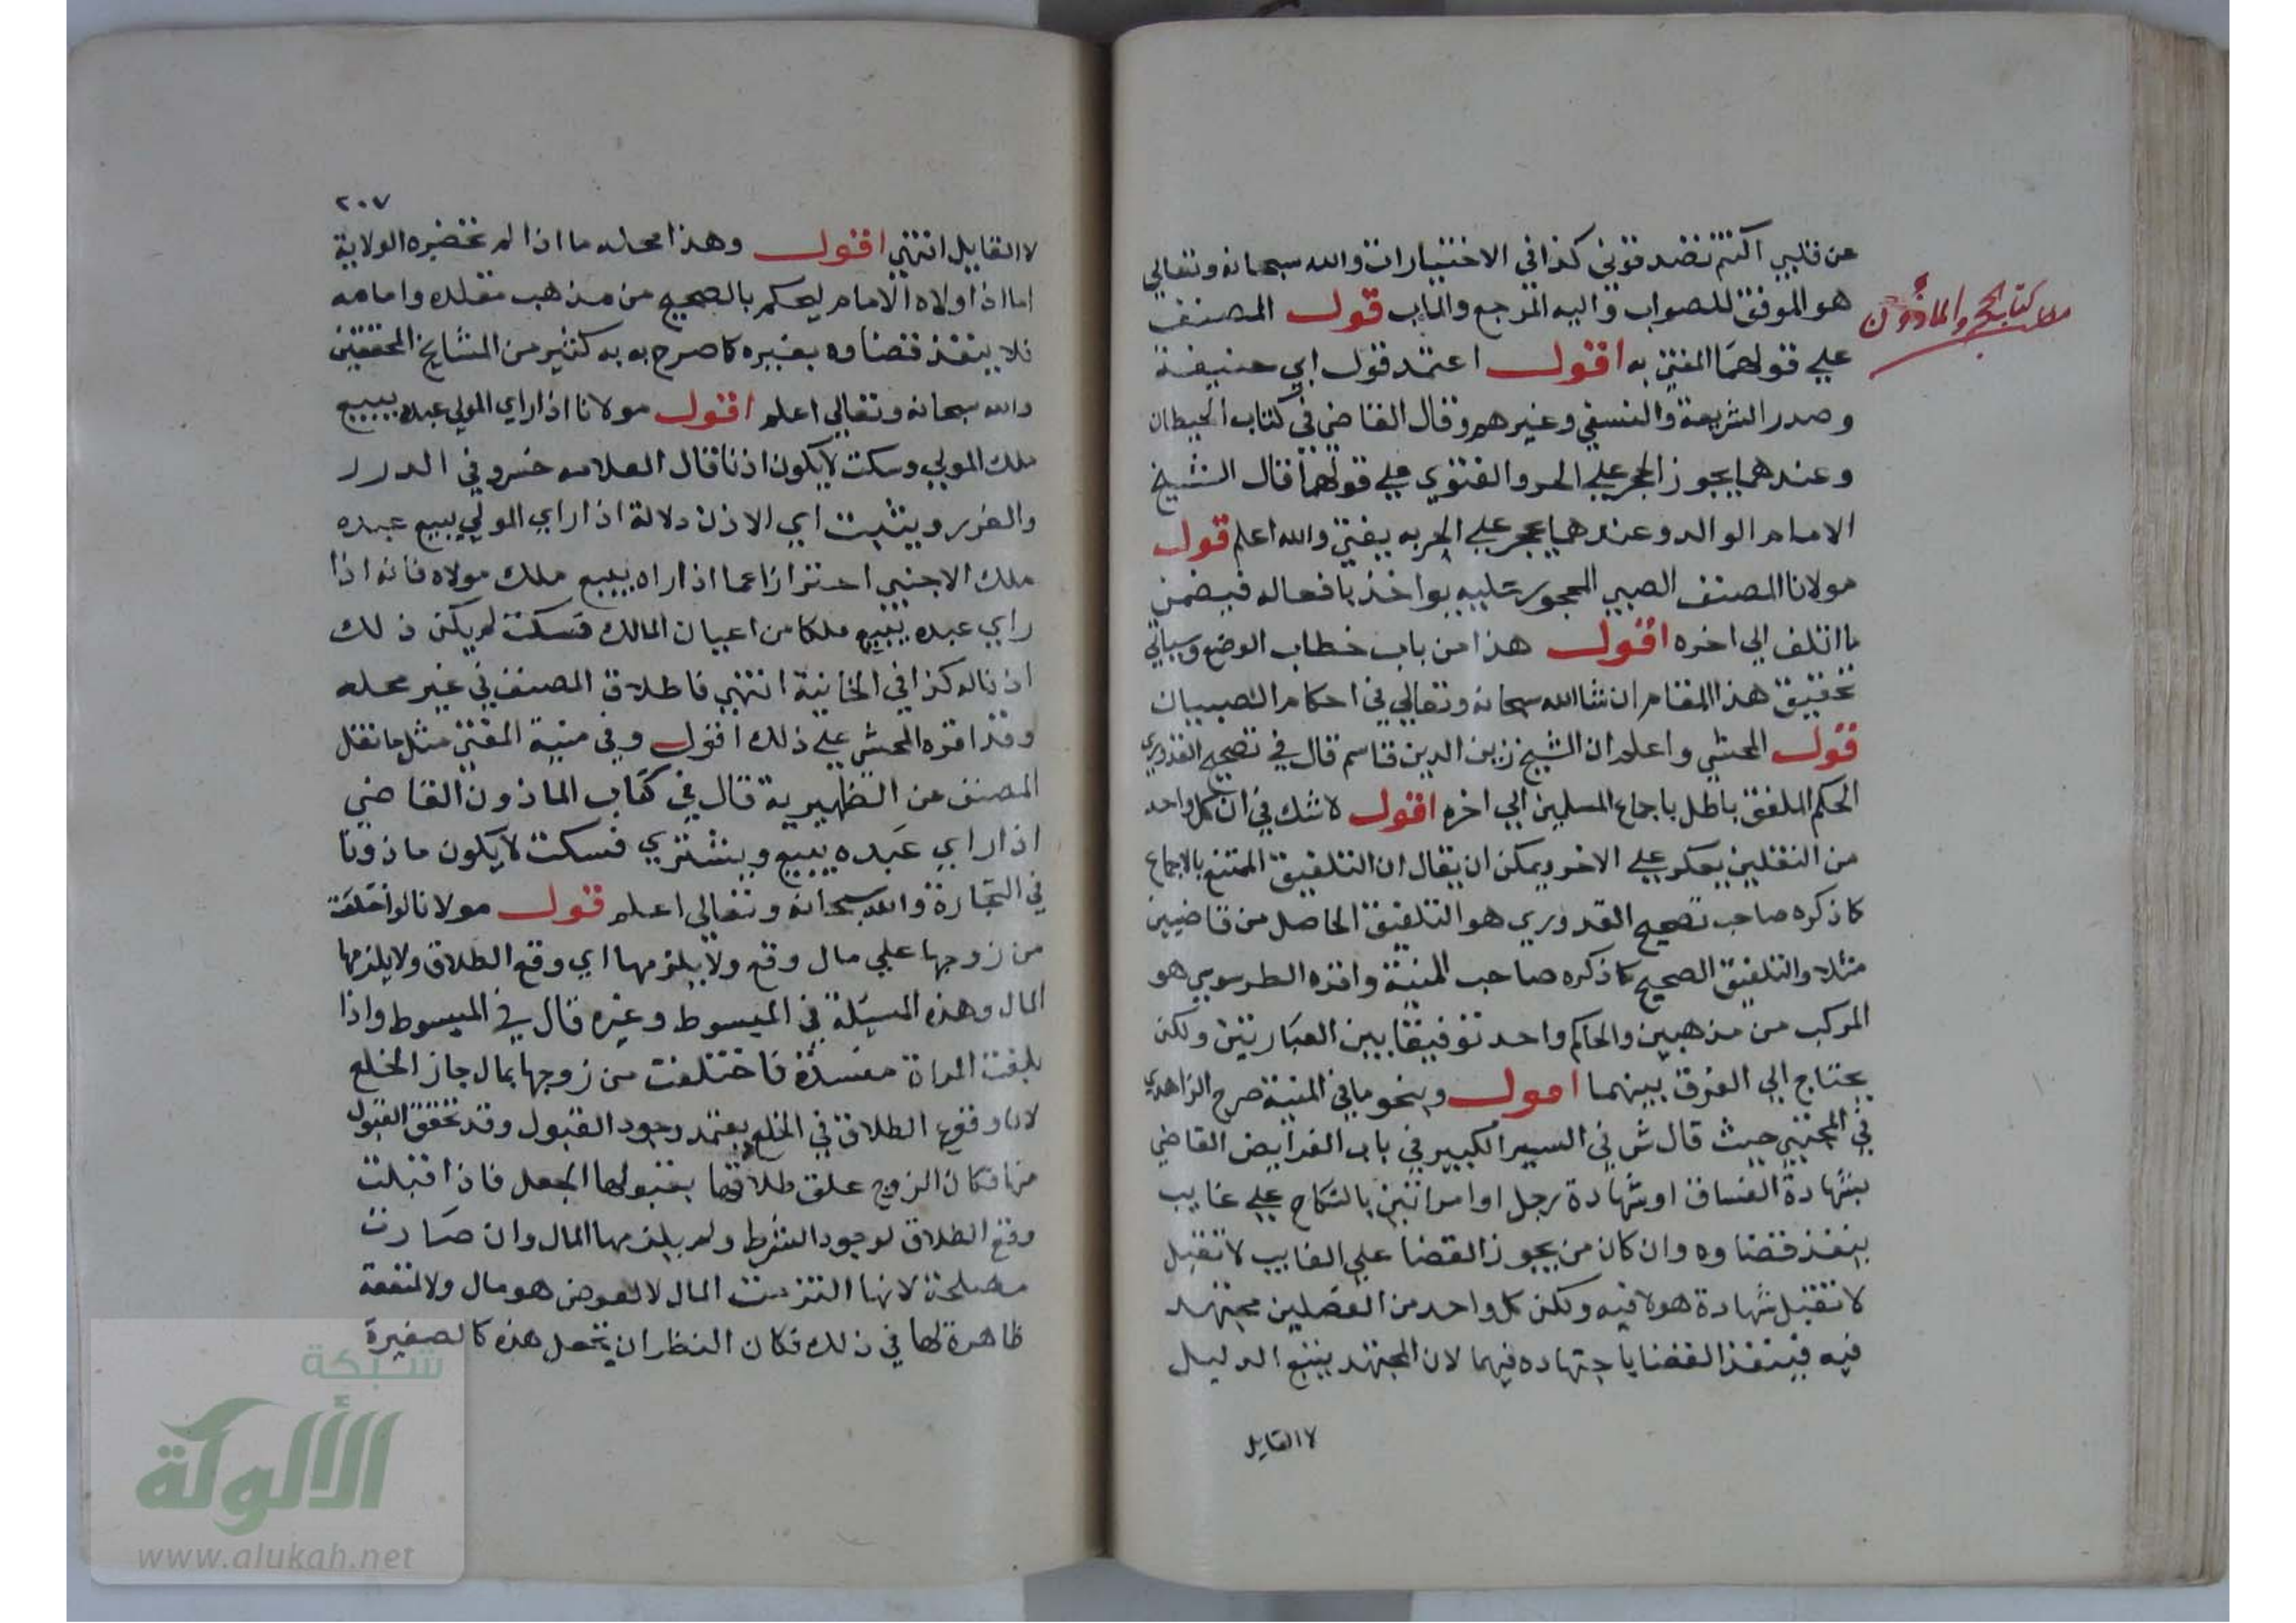 عن قلبي اكنتم تضد قوني كذا في الاختيارات والله سبحانه وتعالي
هو الموفق للصواب واليه المرجع والماب قول المصنف
كتاب الحجر والماذون
علي قولهما المفتي به اقول اعتمد قول ابي حنيفة
وصدر الشريعة والنسفي وغيرهم وقال القاضي في كتاب الحيطان
وعندهما يجوز الحجر علي الحر والفتوي علي قولهما قال الشيخ
الامام الوالد وعندهما يحجر علي الحر به يفتي والله اعلم قول
مولانا المصنف الصبي المحجور عليه يواخذ بافعاله فيضمن
ما اتلف الي اخره اقول هذا من باب خطاب الوضع وسياتي
تحقيق هذا المقام ان شا الله سبحانه وتعالي في احكام الصبيان
قول المحشي واعلم ان الشيخ زين الدين قاسم قال في تصحيح القدوري
الحكم الملفق باطل باجماع المسلمين الي اخره اقول لا شك في ان كل واحد
من النقلين يعكر علي الاخر ويمكن ان يقال ان التلفيق الممتنع بالاجماع
كما ذكره صاحب تصحيح القدوري هو التلفيق الحاصل من قاضيين
مثلا والتلفيق الصحيح كما ذكره صاحب المنية واقره الطرسوسي هو
المركب من مذهبين والحاكم واحد توفيقا بين العبارتين ولكن
يحتاج الي الفرق بينهما اقول وبنحو ما في المنية صرح الزاهدي
في المجتبي حيث قال ش في السير الكبير في باب الفرايض القاضي
بشهادة الفساق او شهادة رجل او امراتين بالنكاح علي غايب
ينفذ قضاوه وان كان من يجوز القضا علي الغايب لا تقبل
لا تقبل شهادة هولا فيه ولكن كل واحد من الفصلين مجتهد
فيه فينفذ القضا باجتهاده فيهما لان المجتهد يتبع الدليل
لا القايل
٢٠٧
لا القايل انتهي اقول وهذا محله ما اذا لم تخصره الولاية
اما اذا ولاه الامام ليحكم بالصحيح من مذهب مقلده وامامه
فلا ينفذ قضاوه بغيره كما صرح به به كثير من المشايخ المحققين
والله سبحانه وتعالي اعلم اقول مولانا اذا راي المولي عبده يبيع
ملك المولي وسكت لا يكون اذنا قال العلامه خسرو في الدرر
والغرر ويثبت اي الاذن دلالة اذا راي المولي يبيع عبده
ملك الاجنبي احترازا عما اذا راه يبيع ملك مولاه فانه اذا
راي عبده يبيع ملكا من اعيان المالك فسكت لم يكن ذلك
اذنا له كذا في الخانية انتهي فاطلاق المصنف في غير محله
وقد اقره المحشي علي ذلك اقول وفي منية المفتي مثل ما نقل
المصنف عن الظهيرية قال في كتاب الماذون القاضي
اذا راي عبده يبيع ويشتري فسكت لا يكون ماذونا
في التجارة والله سبحانه وتعالي اعلم قول مولانا لو اختلعت
من زوجها علي مال وقع ولا يلزمها اي وقع الطلاق ولا يلزمها
المال وهذه المسيلة في المبسوط وغيره قال في المبسوط واذا
بلغت المراة مفسدة فاختلعت من زوجها بمال جاز الخلع
لان وقوع الطلاق في الخلع يعتمد وجود القبول وقد تحقق القبول
منها فكان الزوج علق طلاقها بقبولها الجعل فاذا قبلت
وقع الطلاق لوجود الشرط ولم يلزمها المال وان صارت
مصلحة لانها التزمت المال لا لعوض هو مال ولا لمنفعة
ظاهرة لها في ذلك فكان النظر ان يجعل هذه كالصغيرة
شبكة
الألوكة
www.alukah.net